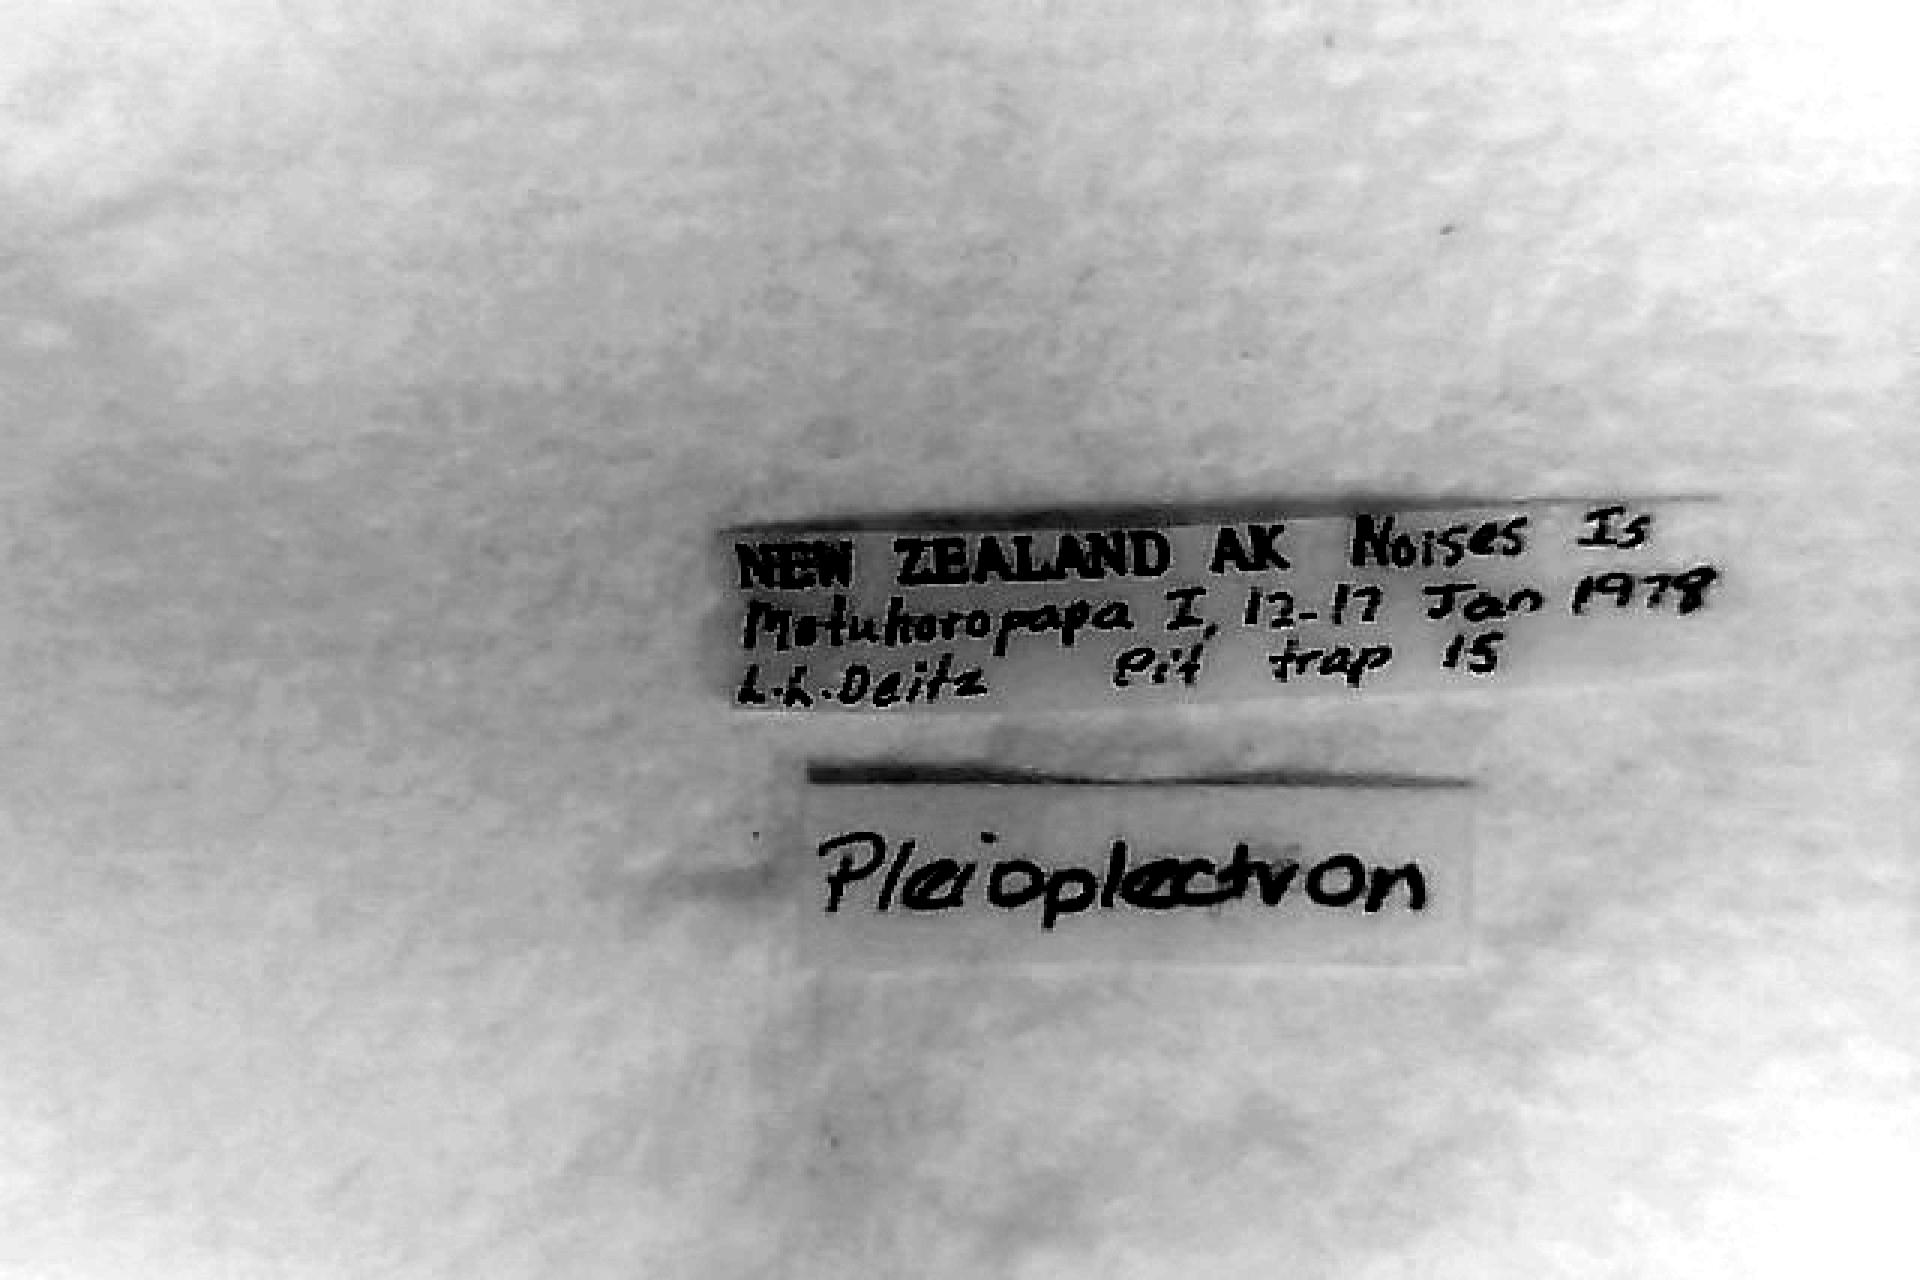 NEW ZEALAND AK Noises Is
Motuhoropapa I, 12-17 Jan 1978
L.L.Deitz Pit trap 15
Pleioplectron